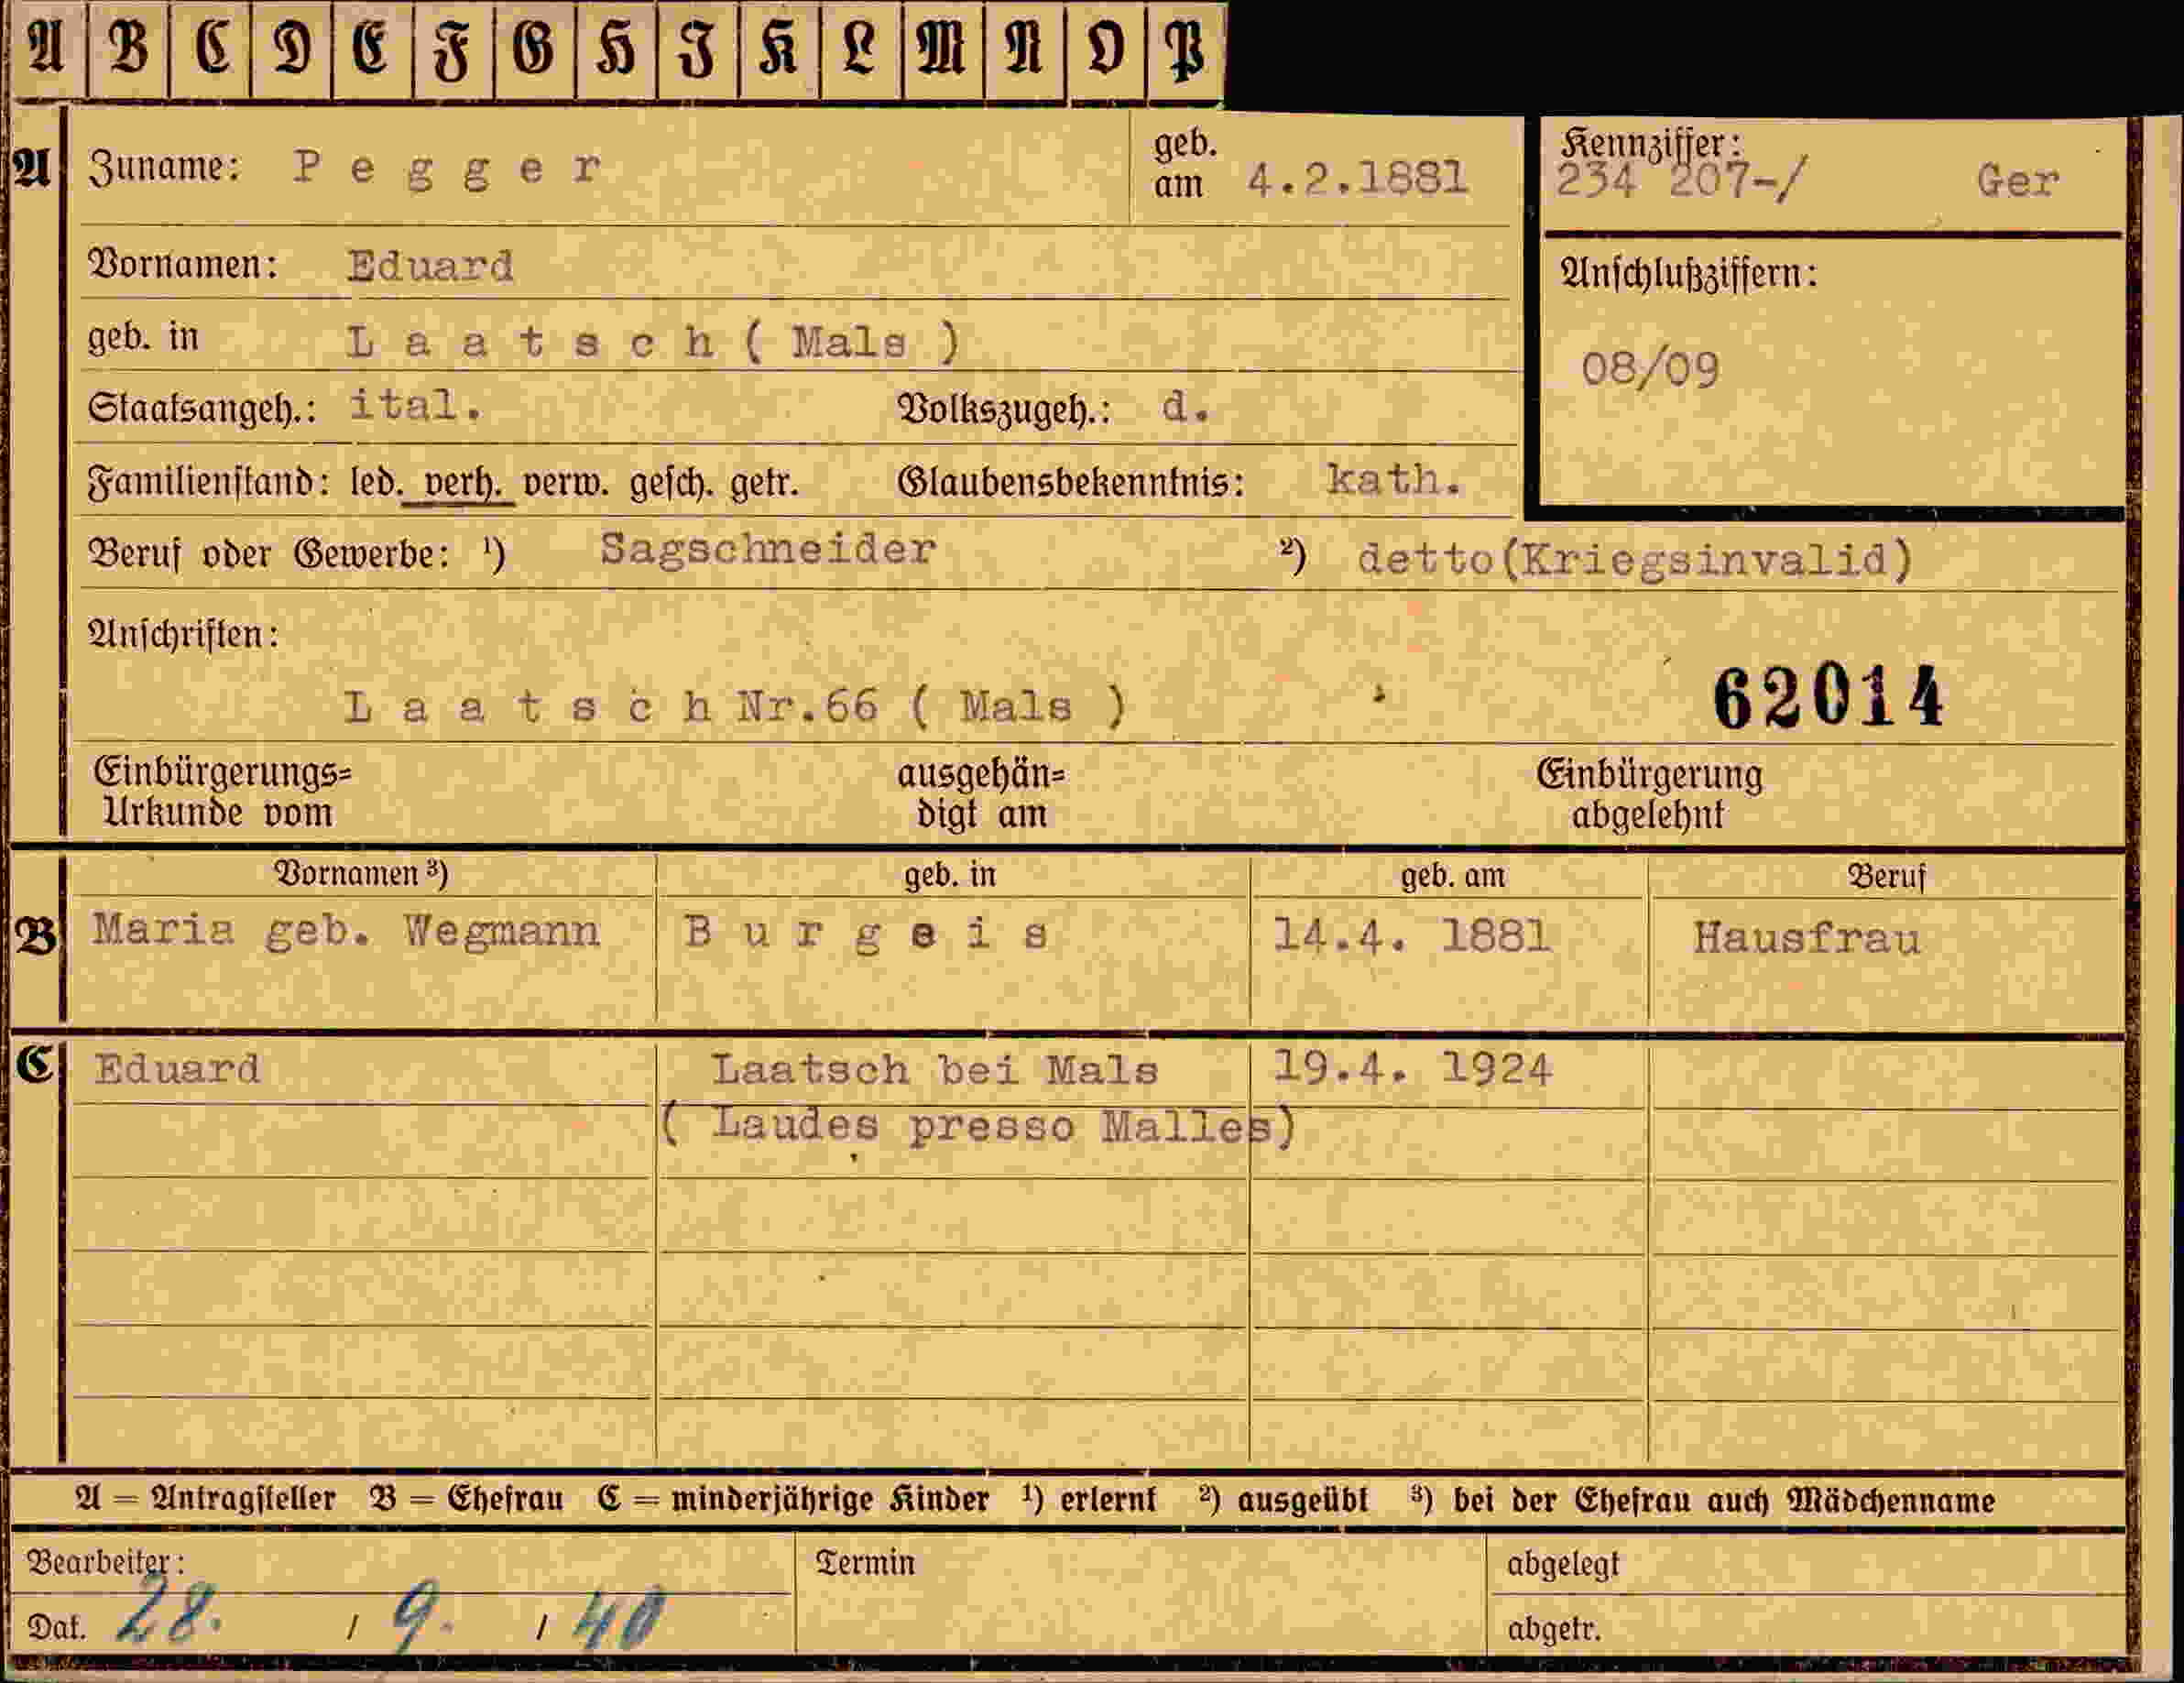 A B C D E F G H J K L M N O P
A Zuname: Pegger geb. am 4.2.1881 Kennziffer: 234 207-/ Ger
Vornamen: Eduard
Anschlußziffern:
geb. in Laatsch ( Mals )
08/09
Staatsangeh.: ital. Volkszugeh.: d.
Familienstand: led. verh. verw. gesch. getr. Glaubensbekenntnis: kath.
Beruf oder Gewerbe: ¹) Sagschneider ²) detto(Kriegsinvalid)
Anschriften:
Laatsch Nr.66 ( Mals ) 62014
Einbürgerungs= ausgehän= Einbürgerung
Urkunde vom digt am abgelehnt
Vornamen ³) geb. in geb. am Beruf
B Maria geb. Wegmann Burgeis 14.4. 1881 Hausfrau
C Eduard Laatsch bei Mals 19.4. 1924
( Laudes presso Malles)
A = Antragsteller B = Ehefrau C = minderjährige Kinder ¹) erlernt ²) ausgeübt ³) bei der Ehefrau auch Mädchenname
Bearbeiter: Termin abgelegt
Dat. 28. / 9. / 40 abgetr.